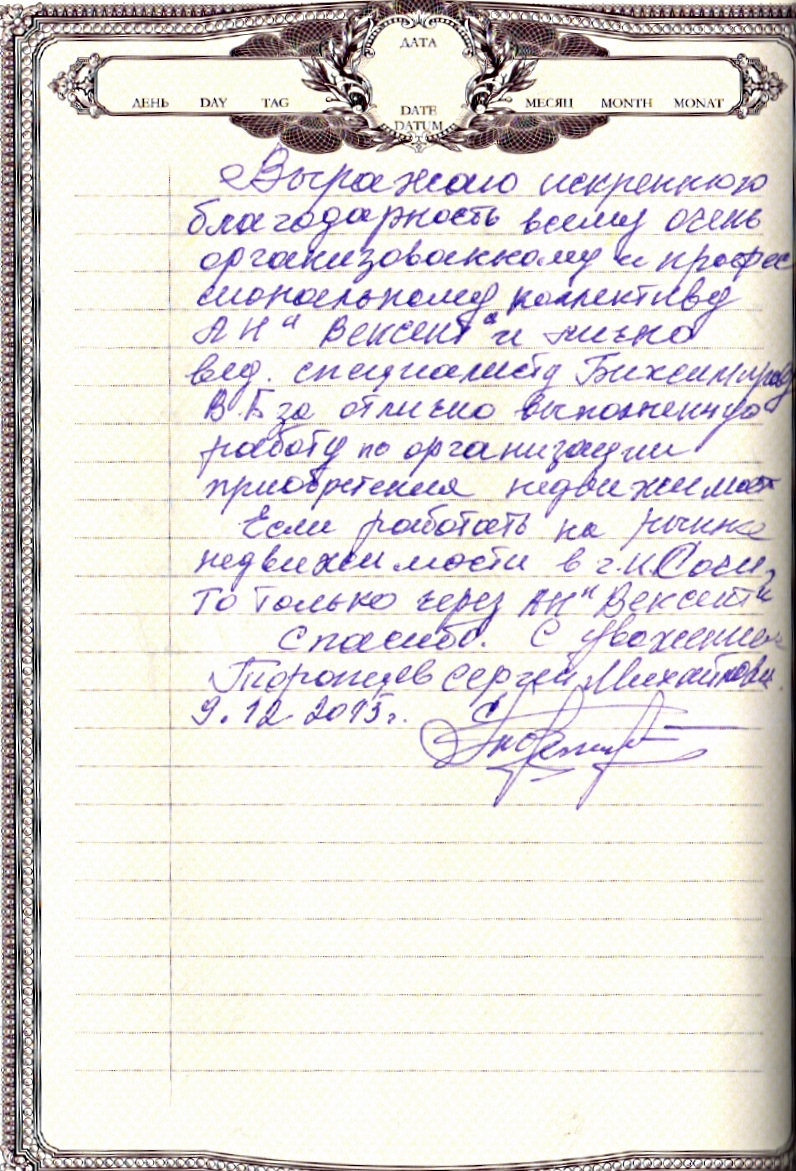 ДАТА
ДЕНЬ DAY TAG
DATE
DATUM
МЕСЯЦ MONTH MONAT
Выражаю искреннюю
благодарность всему очень
организованному и профес
сиональному коллективу
АН "Вексент" и лично
вед. специалисту
В.Б за отлично выполненную
работу по организации
приобретения недвижимост
Если работать на рынке
недвижимости в г.к. Сочи,
то только через АН "Вексент"
Спасибо. С уважением
Торопцев Сергей Михайлович.
9.12.2015г.